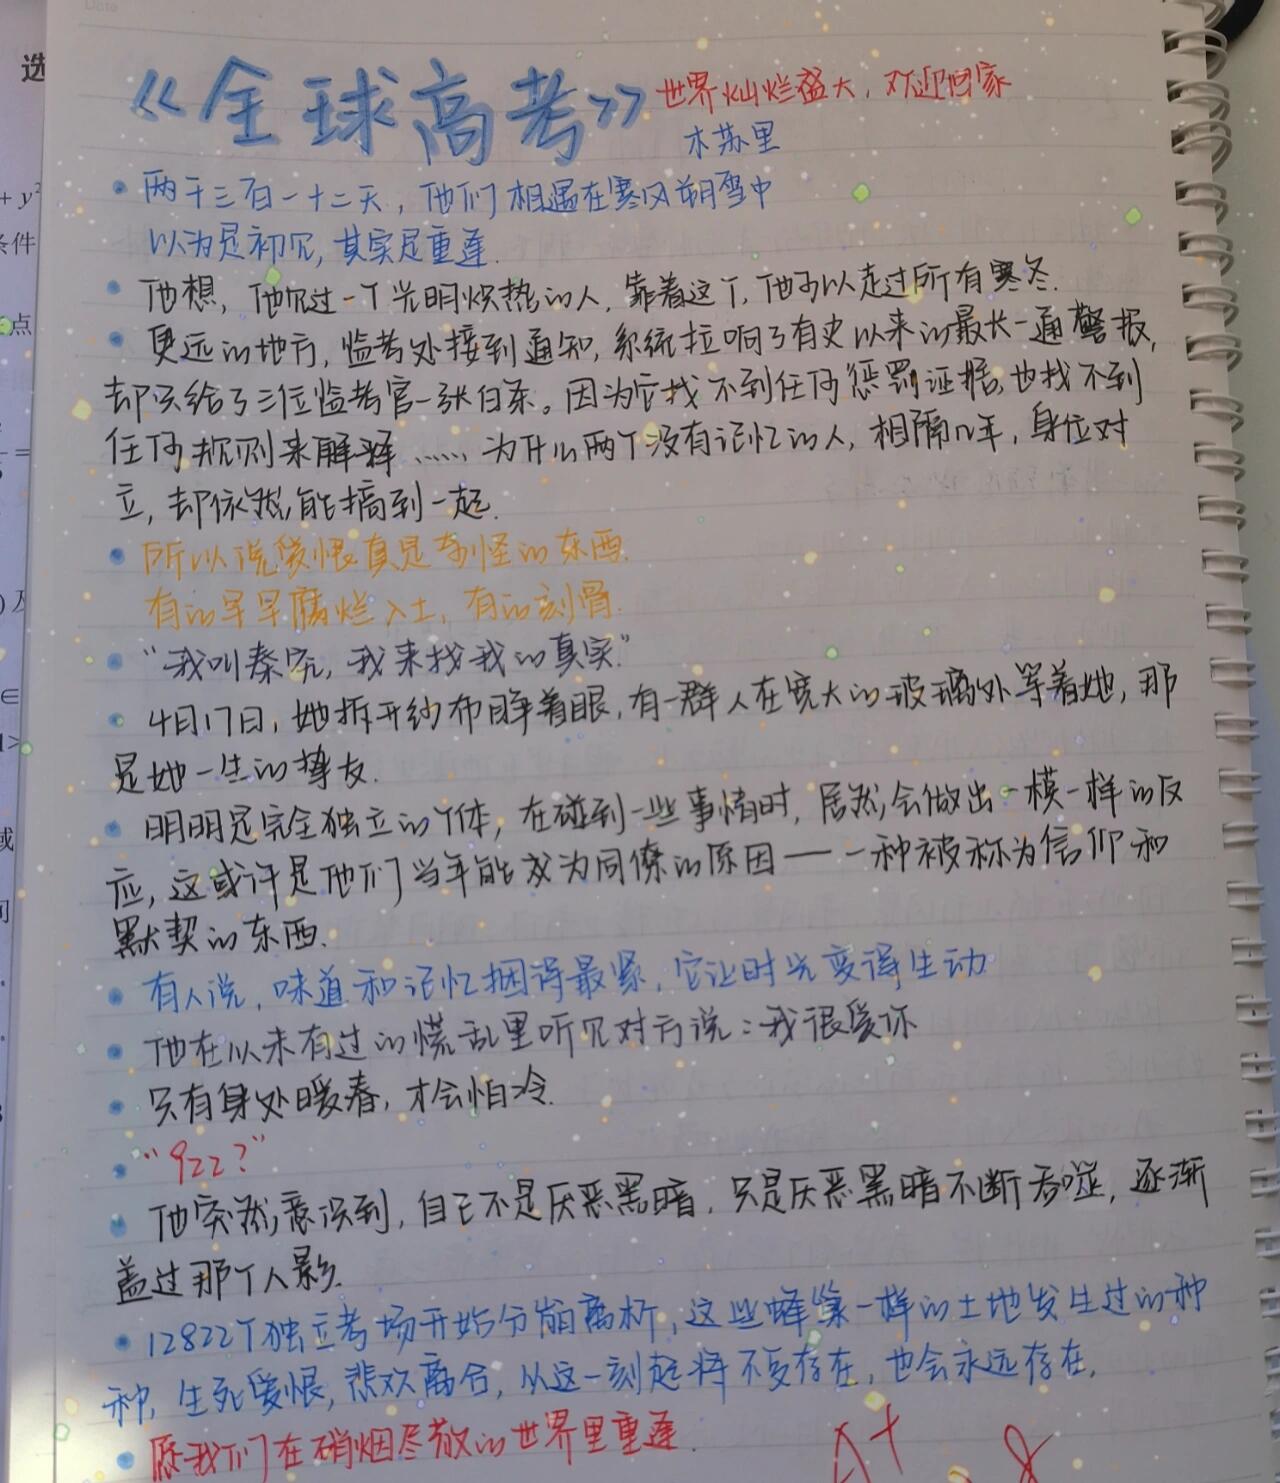 Date
选
《全球高考》世界灿烂盛大，欢迎回家
木苏里
两千三百一十二天，他们相遇在寒风朔雪中
以为是初见，其实是重逢.
他想，他见过一个光明炽热的人，靠着这个，他可以走过所有寒冬.
更远的地方，监考处接到通知，系统拉响了有史以来的最长一通警报，
却只给了三位监考官一张白条。因为它找不到任何惩罚证据，也找不到
任何规则来解释……为什么两个没有记忆的人，相隔几年，身位对
立，却依然能搞到一起.
所以说爱恨真是奇怪的东西.
有的早早腐烂入土，有的刻骨.
“我叫秦究，我来找我的真实”
4月17日，她拆开纱布睁着眼，有一群人在宽大的玻璃外等着她，那
是她一生的挚友.
明明是完全独立的个体，在碰到一些事情时，居然会做出一模一样的反
应，这或许是他们当年能成为同僚的原因——一种被称为信仰和
默契的东西.
有人说，味道和记忆捆得最紧，它让时光变得生动
他在从未有过的慌乱里听见对方说：我很爱你
只有身处暖春，才会怕冷.
“922？”
他突然意识到，自己不是厌恶黑暗，只是厌恶黑暗不断吞噬，逐渐
盖过那个人影.
12822个独立考场开始分崩离析，这些蜂巢一样的土地发生过的种
种，生死爱恨，悲欢离合，从这一刻起将不复存在，也会永远存在.
愿我们在硝烟尽散的世界里重逢.
A+
+y²
条件
点
=
)及
∈
域
间